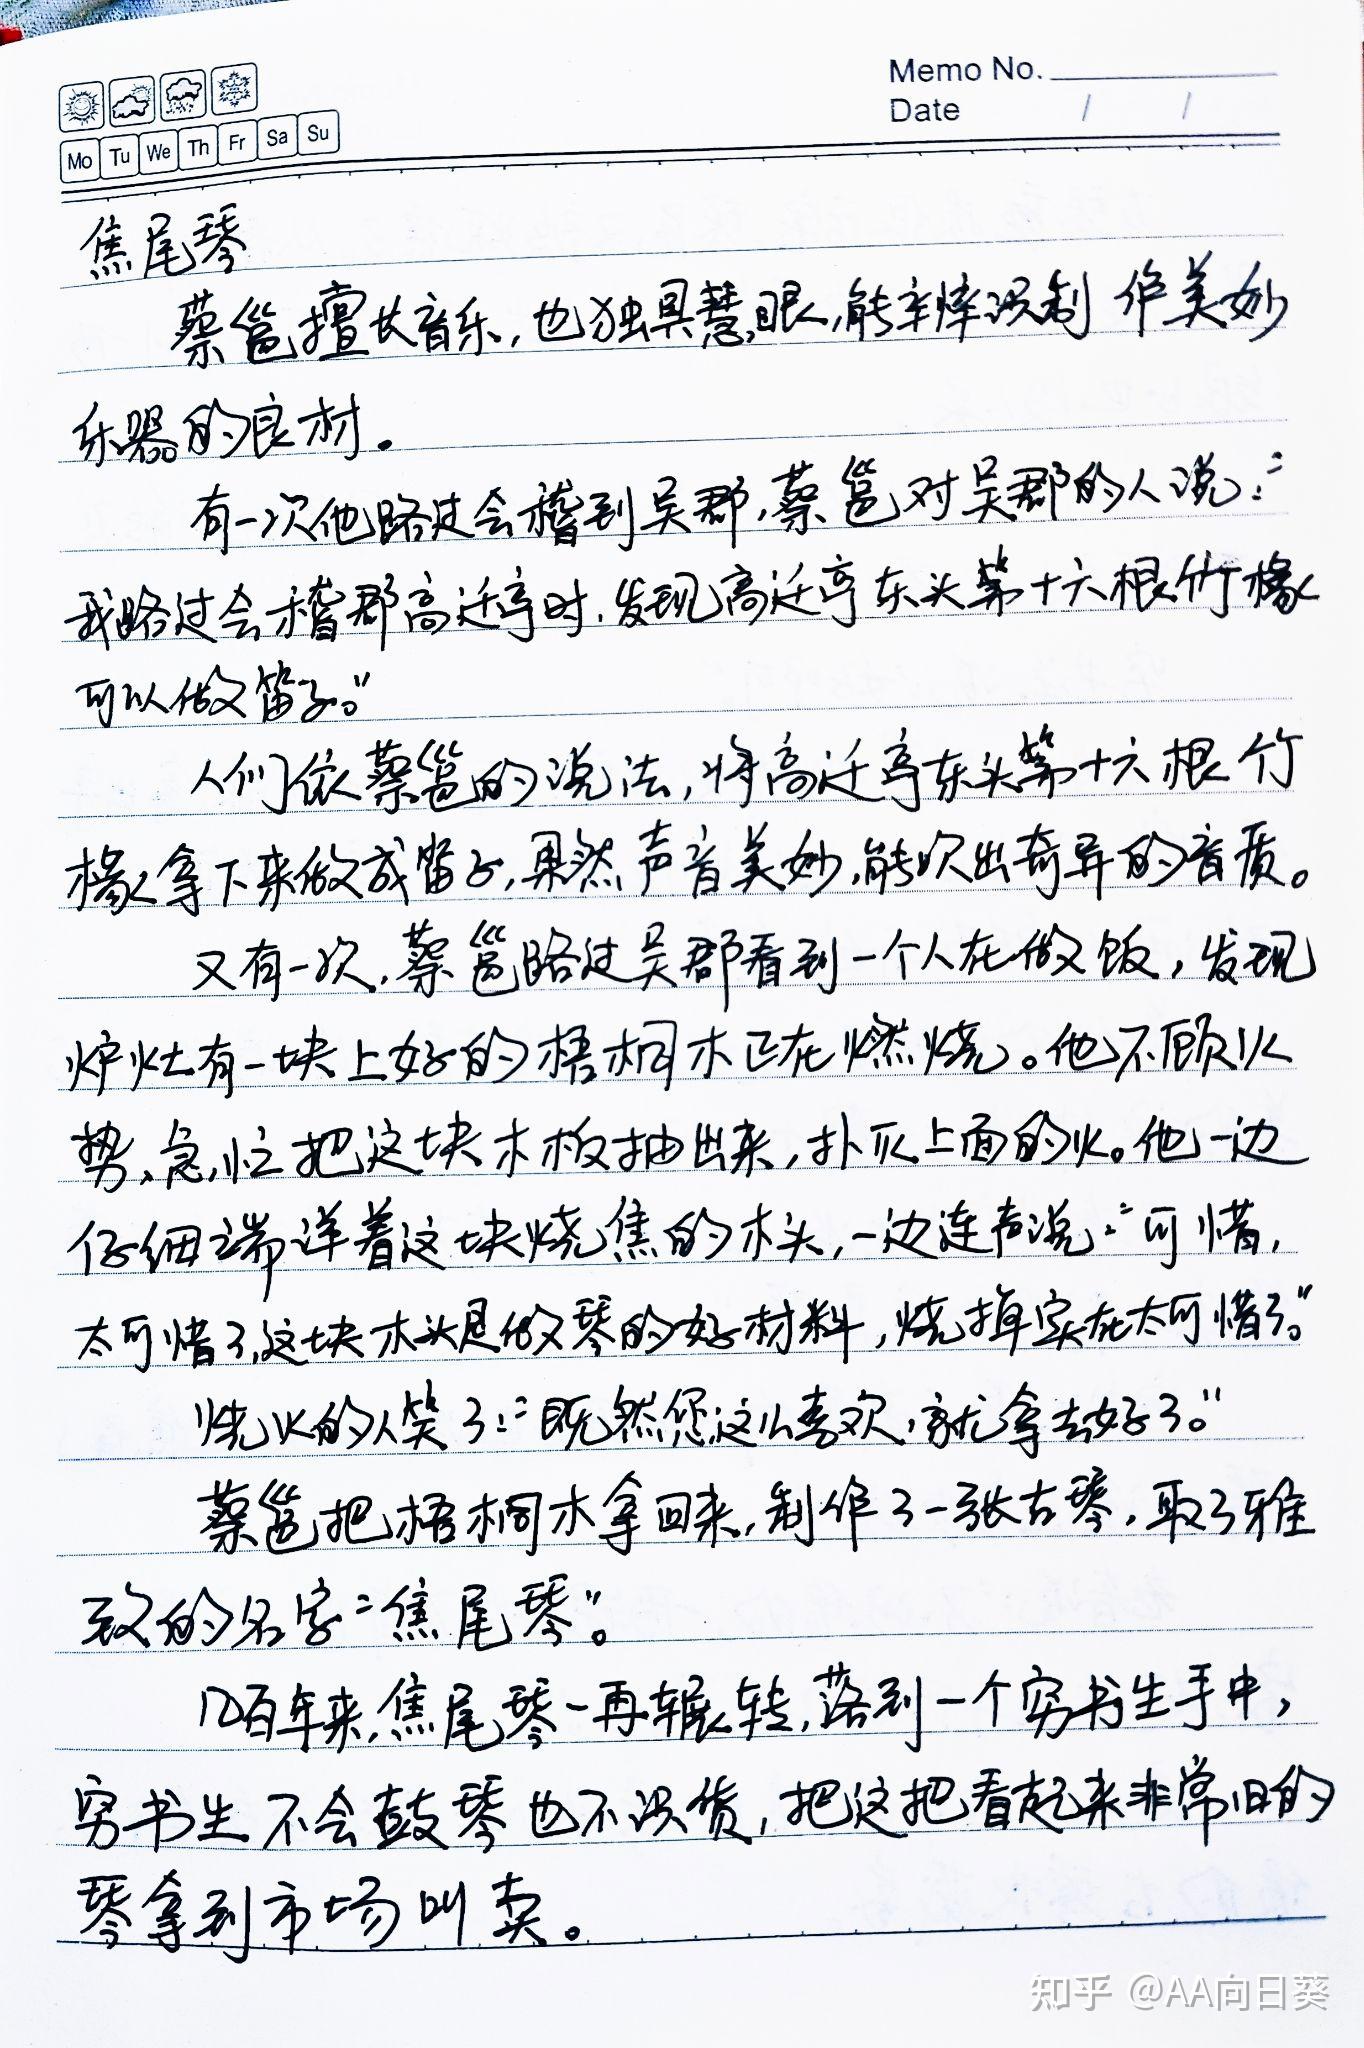 Memo No.
Date / /
Mo Tu We Th Fr Sa Su
焦尾琴
蔡邕擅长音乐,也独具慧眼,能辛辣识制作美妙
乐器的良材。
有一次他路过会稽到吴郡,蔡邕对吴郡的人说:“
我路过会稽郡高迁亭时,发现高迁亭东头第十六根竹椽
可以做笛子。”
人们依蔡邕的说法,将高迁亭东头第十六根竹
椽拿下来做成笛子,果然声音美妙,能吹出奇异的音质。
又有一次,蔡邕路过吴郡看到一个人在做饭,发现
炉灶有一块上好的梧桐木正在燃烧。他不顾火
势,急忙把这块木板抽出来,扑灭上面的火。他一边
仔细端详着这块烧焦的木头,一边连声说:“可惜,
太可惜了,这块木头是做琴的好材料,烧掉实在太可惜了。”
烧火的人笑了:“既然您这么喜欢,就拿去好了。”
蔡邕把梧桐木拿回来,制作了一张古琴,取了雅
致的名字“焦尾琴”。
几百年来,焦尾琴一再辗转,落到一个穷书生手中,
穷书生不会鼓琴也不识货,把这把看起来非常旧的
琴拿到市场叫卖。
知乎 @AA向日葵